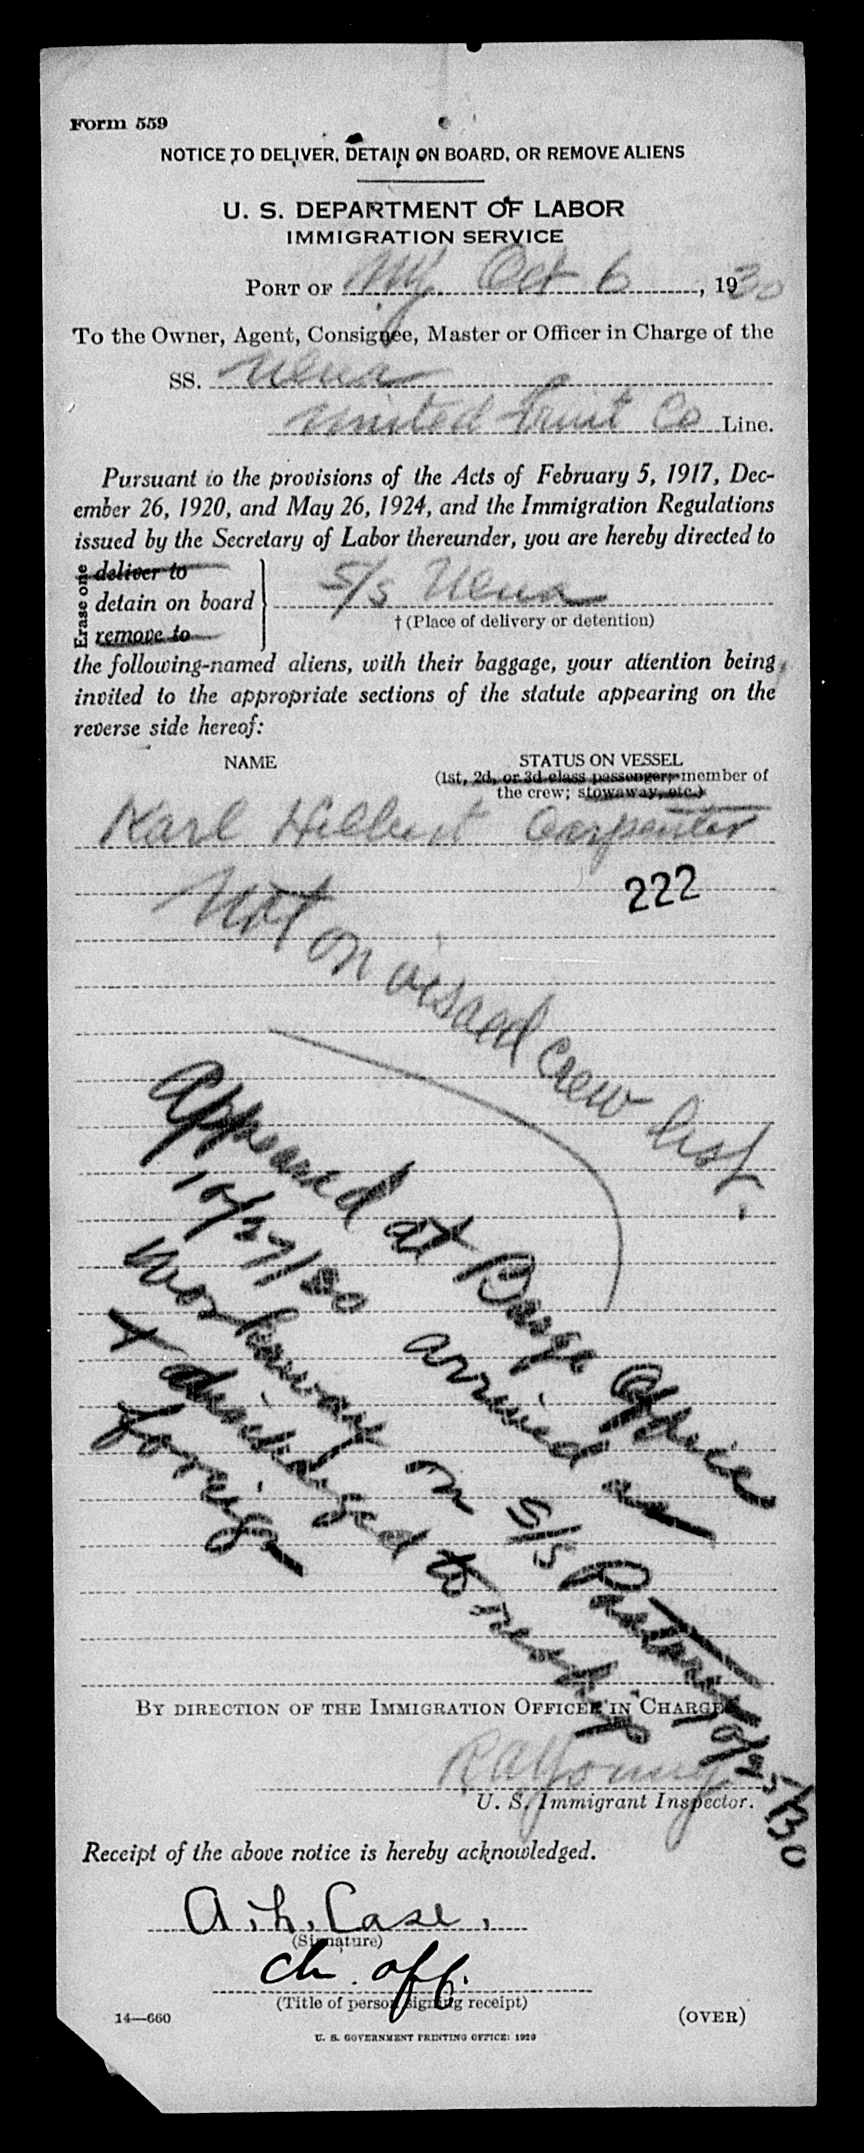 Form 559
NOTICE TO DELIVER, DETAIN ON BOARD, OR REMOVE ALIENS
U. S. DEPARTMENT OF LABOR
IMMIGRATION SERVICE
PORT OF NY Oct 6, 1930
To the Owner, Agent, Consignee, Master or Officer in Charge of the
SS. Ulua
United Fruit Co Line.
Pursuant to the provisions of the Acts of February 5, 1917, Dec-
ember 26, 1920, and May 26, 1924, and the Immigration Regulations
issued by the Secretary of Labor thereunder, you are hereby directed to
Erase one
deliver to
detain on board
remove to
S/S Ulua
† (Place of delivery or detention)
the following-named aliens, with their baggage, your attention being
invited to the appropriate sections of the statute appearing on the
reverse side hereof:
NAME
STATUS ON VESSEL
(1st, 2d, or 3d class passenger; member of
the crew; stowaway, etc.)
Karl Hilbert Carpenter
222
Not on visaed crew list.
Appeared at Barge Office
10/27/30 arrived as
workaway on S/S Pastores 10/25/30
+ discharged to reship
foreign
BY DIRECTION OF THE IMMIGRATION OFFICER IN CHARGE
R A Young
U. S. Immigrant Inspector.
Receipt of the above notice is hereby acknowledged.
A. L. Case.
(Signature)
ch. off.
(Title of person signing receipt)
14—660
(OVER)
U. S. GOVERNMENT PRINTING OFFICE: 1929